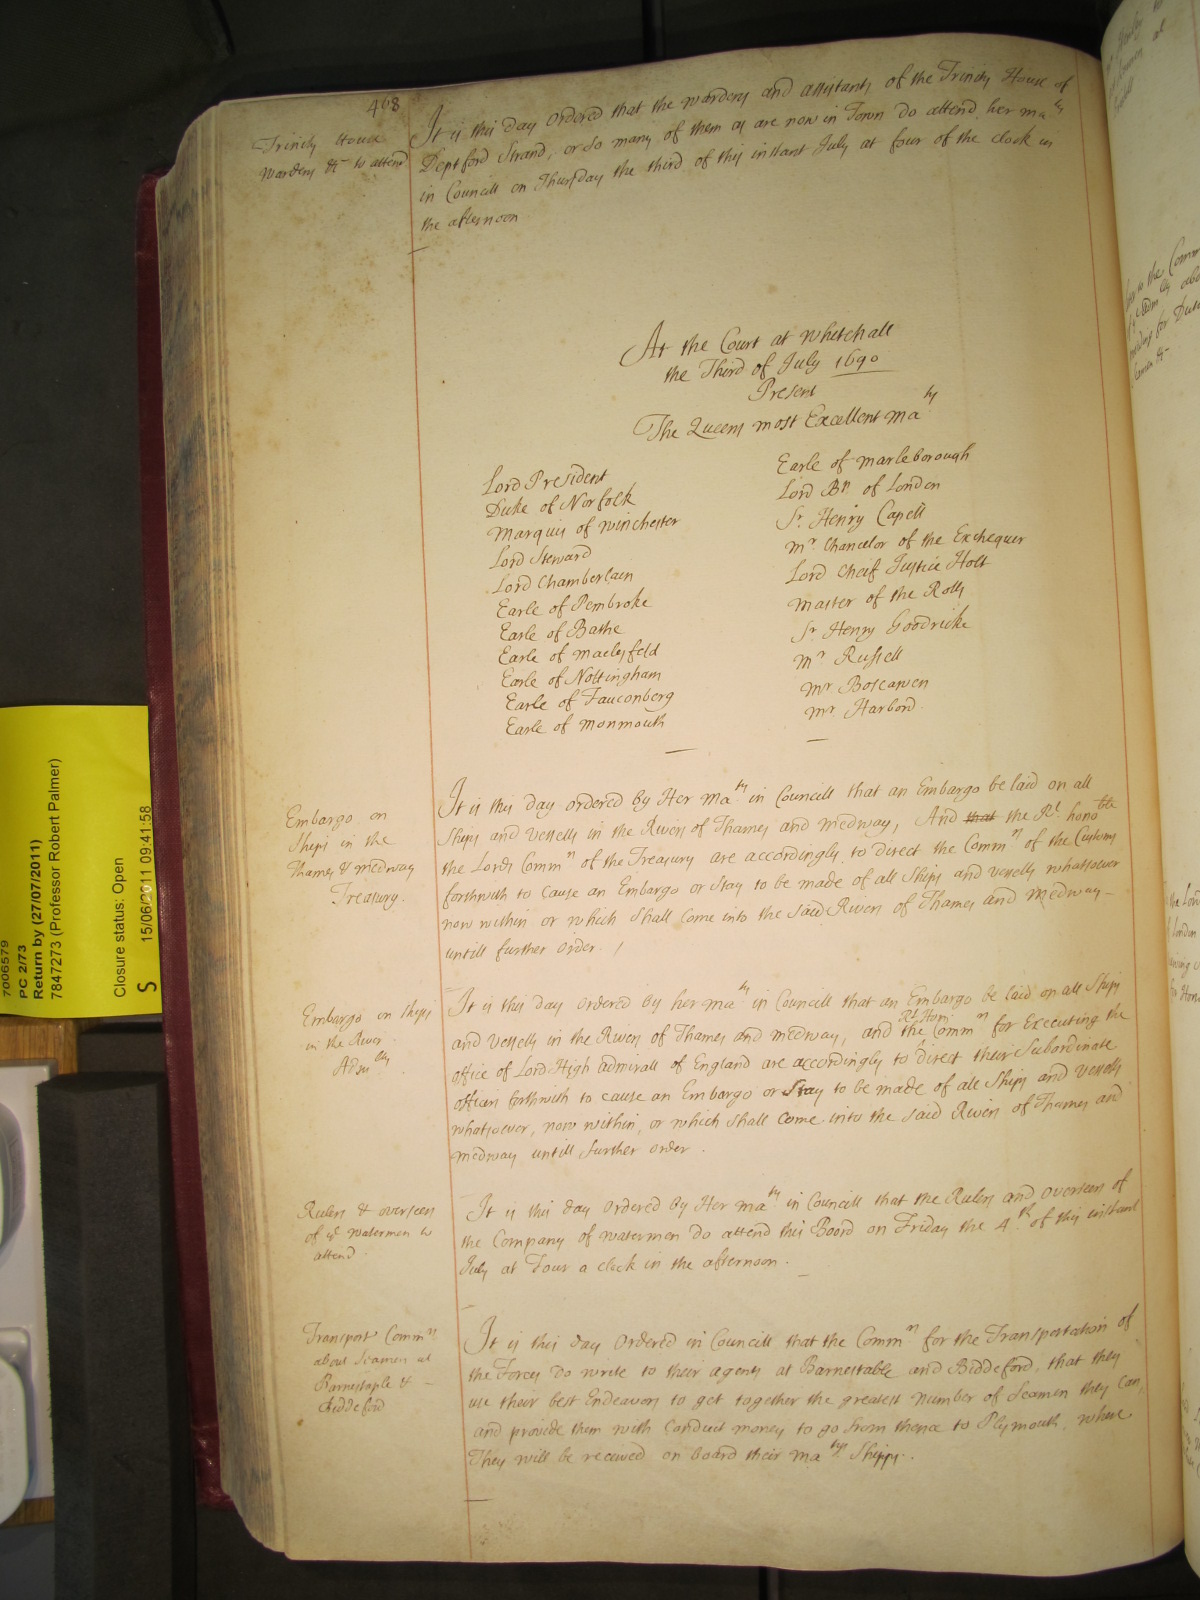 468
Trinity House
Wardens &c to attend
It is this day ordered that the wardens and assistants of the Trinity House of
Deptford Strand, or so many of them as are now in Town do attend her Ma^ty
in Councill on Thursday the third of this instant July at four of the clock in
the afternoon
At the Court at Whitehall
the Third of July 1690
Present
The Queens most Excellent Ma^ty
Lord President
Duke of Norfolk
Marquis of Winchester
Lord Steward
Lord Chamberlain
Earle of Pembroke
Earle of Bathe
Earle of Maclesfeld
Earle of Nottingham
Earle of Fauconberg
Earle of Monmouth
Earle of Marleborough
Lord Bp of London
Sr. Henry Capell
Mr. Chancelor of the Exchequer
Lord Cheif Justice Holt
Master of the Rolls
Sr. Henry Goodricke
Mr. Russell
Mr. Boscawen
Mr. Harbord.
Embargo on
Ships in the
Thames & Medway
Treasury.
It is this day ordered by Her Ma^ty in Councill that an Embargo be laid on all
Ships and Vessells in the Rivers of Thames and Medway, And that the Rt. hono^ble
the Lords Comm^rs of the Treasury are accordingly to direct the Comm^rs of the Customs
forthwith to cause an Embargo or Stay to be made of all Ships and vessells whatsoever
now within or which shall come into the said Rivers of Thames and Medway
untill further order.
Embargo on Ships
in the River
Adm^lty
It is this day ordered by her Ma^ty in Councill that an Embargo be laid on all Ships
and vessells in the Rivers of Thames and Medway, and the Rt. Hon: Comm^rs for Executing the
office of Lord High Admirall of England are accordingly to direct their Subordinate
officers forthwith to cause an Embargo or Stay to be made of all Ships and vessells
whatsoever, now within, or which shall come into the said Rivers of Thames and
Medway untill further order.
Rulers & overseers
of ye Watermen to
attend
It is this day ordered by Her Ma^ty in Councill that the Rulers and overseers of
the Company of Watermen do attend this Board on Friday the 4.th of this instant
July at Four a clock in the afternoon.
Transport Comm^rs
about Seamen at
Barnestaple &
Biddeford
It is this day Ordered in Councill that the Comm^rs for the Transportation of
the Forces do write to their agents at Barnestable and Biddeford, that they
use their best Endeavors to get together the greatest number of Seamen they can,
and provide them with Conduct money to go from thence to Plymouth, where
They will be received on board their Ma^tys Shipps.
7006579
PC 2/73
Return by (27/07/2011)
7847273 (Professor Robert Palmer)
Closure status: Open
S 15/06/2011 09:41:58